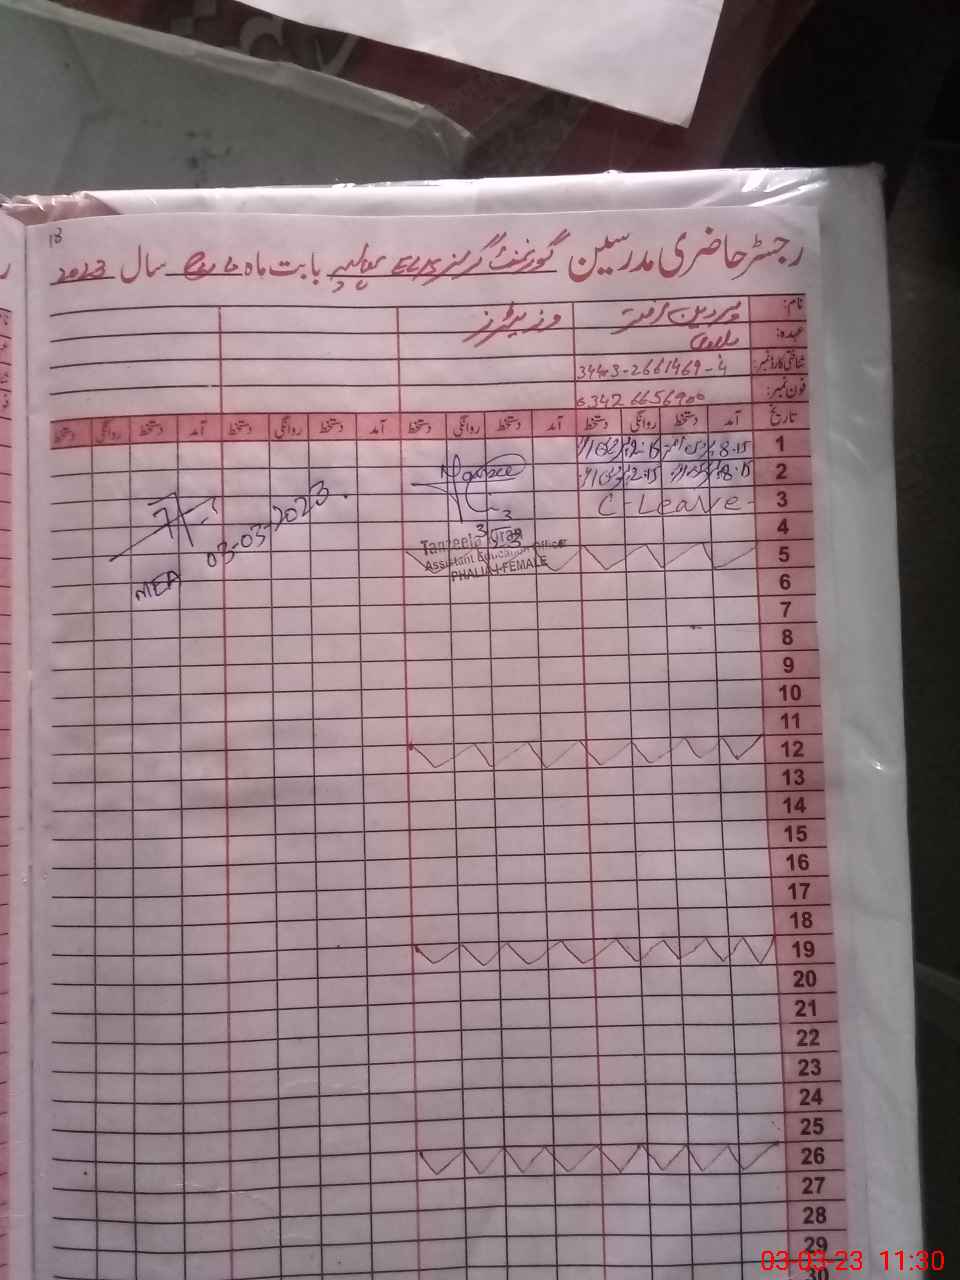 18
رجسٹر حاضری مدرسین گورنمنٹ گرلز بابت ماہ مارچ سال 2023
نام: پروین اختر وزیٹرز
عہدہ:
شناختی کارڈ نمبر:
فون نمبر: 0342 6656900
تاریخ آمد دستخط روانگی دستخط آمد دستخط روانگی دستخط آمد دستخط روانگی دستخط آمد دستخط روانگی دستخط
1 8.15 2.15
2 8.15 2.15
3 C-Leave-
03-03-2023.
MEA
3
3
Tanzeela
Assistant Education Office
PHALIA-FEMALE
4
5
6
7
8
9
10
11
12
13
14
15
16
17
18
19
20
21
22
23
24
25
26
27
28
29
30
03-03-23 11:30